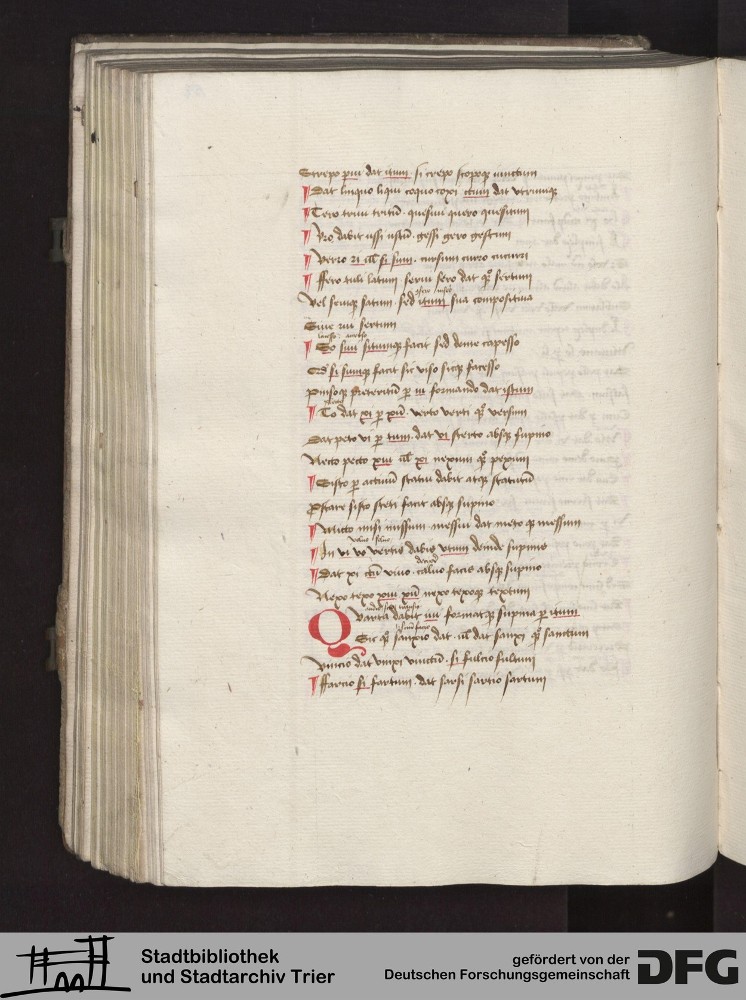 Strepo pui dat itum · si crepo scopoꝗ iunctum
¶ Dat linquo liqui coquo coxi ctum dat vtrumqꝫ
¶ Tero triui tritū · quesiui quero quesitum
¶ Uro dabit ussi ustū · gessi gero gestum
¶ verro ri ul si sum · cursum curro cucurri
¶ ffero tuli latum · serui sero dat qꝫ sertum
Vel seuiqꝫ satum · sed itum sua composita
Siue rui sertum
¶ So siui situmqꝫ facit sed deme capesso
Et si sumqꝫ facit sic viso sicqꝫ facesso
Pinsoqꝫ preteritū p ui formando dat istum
¶ To dat xi p xū · verto verti qꝫ versum
Dat peto vi p tum · dat vi sterto absqꝫ supino
Necto pecto xui ul xi nexum qꝫ pexum
¶ Sisto p actiuū statui dabit atqꝫ statutū
Pstare sisto steti facit absqꝫ supino
¶ Mitto misi missum messui dat meto qꝫ messum
¶ In vi vo vertis dabis vtum deinde supinis
¶ Dat xi ctū viuo · caluo facis absqꝫ supino
Nexo texo xui xū nexo texoqꝫ textum
Quarta dabit iui formatqꝫ supina p itum
Sic qꝫ sanxio dat · ul dat sanxi qꝫ sanctum
Vincio dat vinxi vinctū · si fulcio fultum
¶ ffarcio si fartum · dat sarsi sartio sartum
Stadtbibliothek
und Stadtarchiv Trier
gefördert von der
Deutschen Forschungsgemeinschaft
DFG